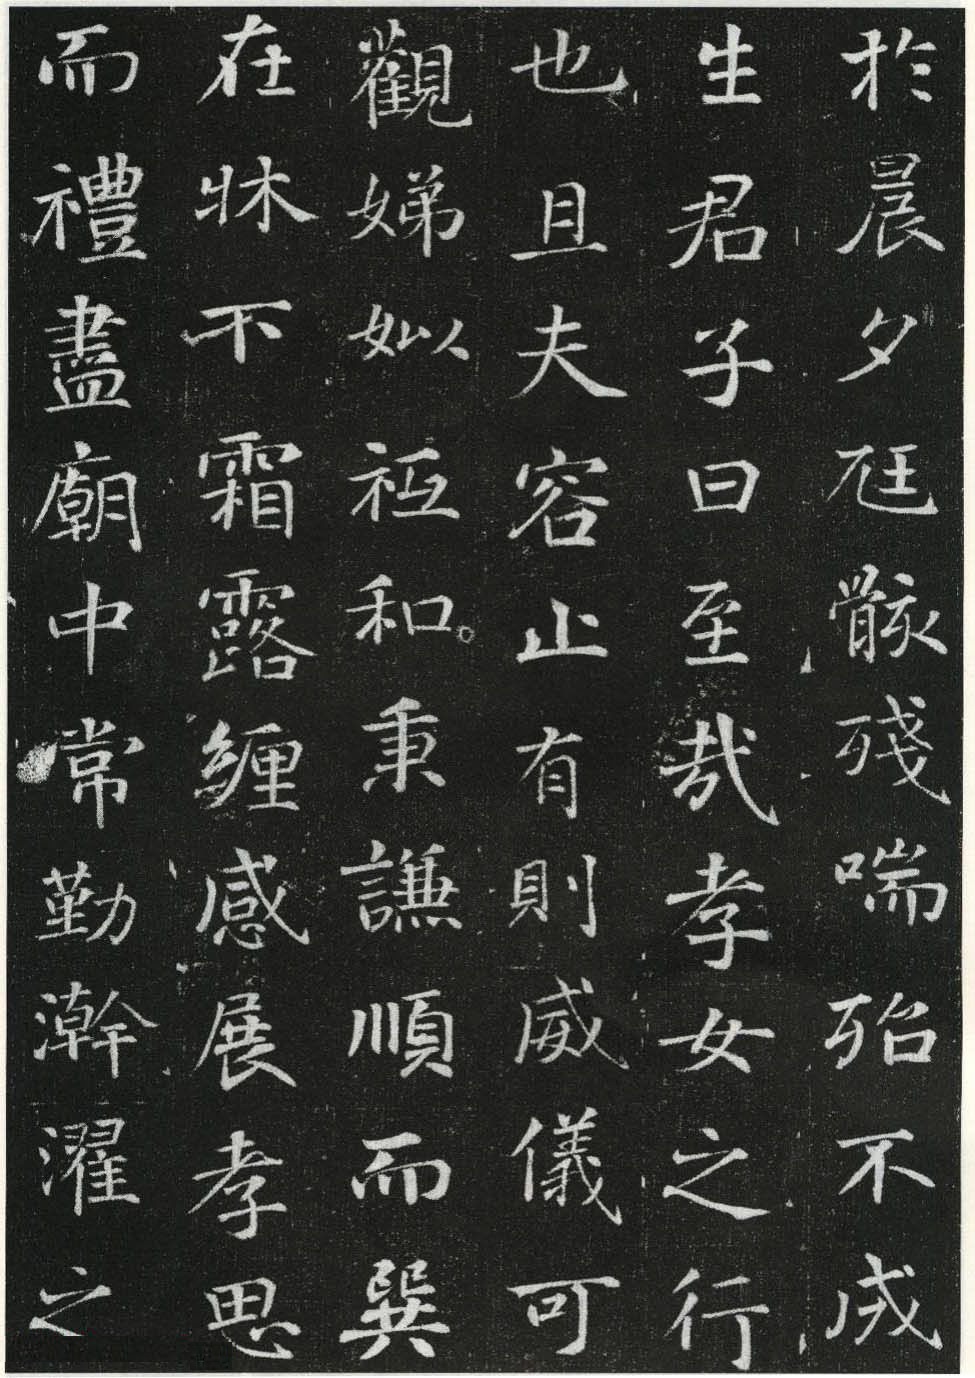 於晨夕尫骸殘喘殆不成
生君子曰至哉孝女之行
也且夫容止有則威儀可
觀娣姒祗和秉謙順而巽
在牀不霜露纏感展孝思
而禮盡廟中常勤澣濯之